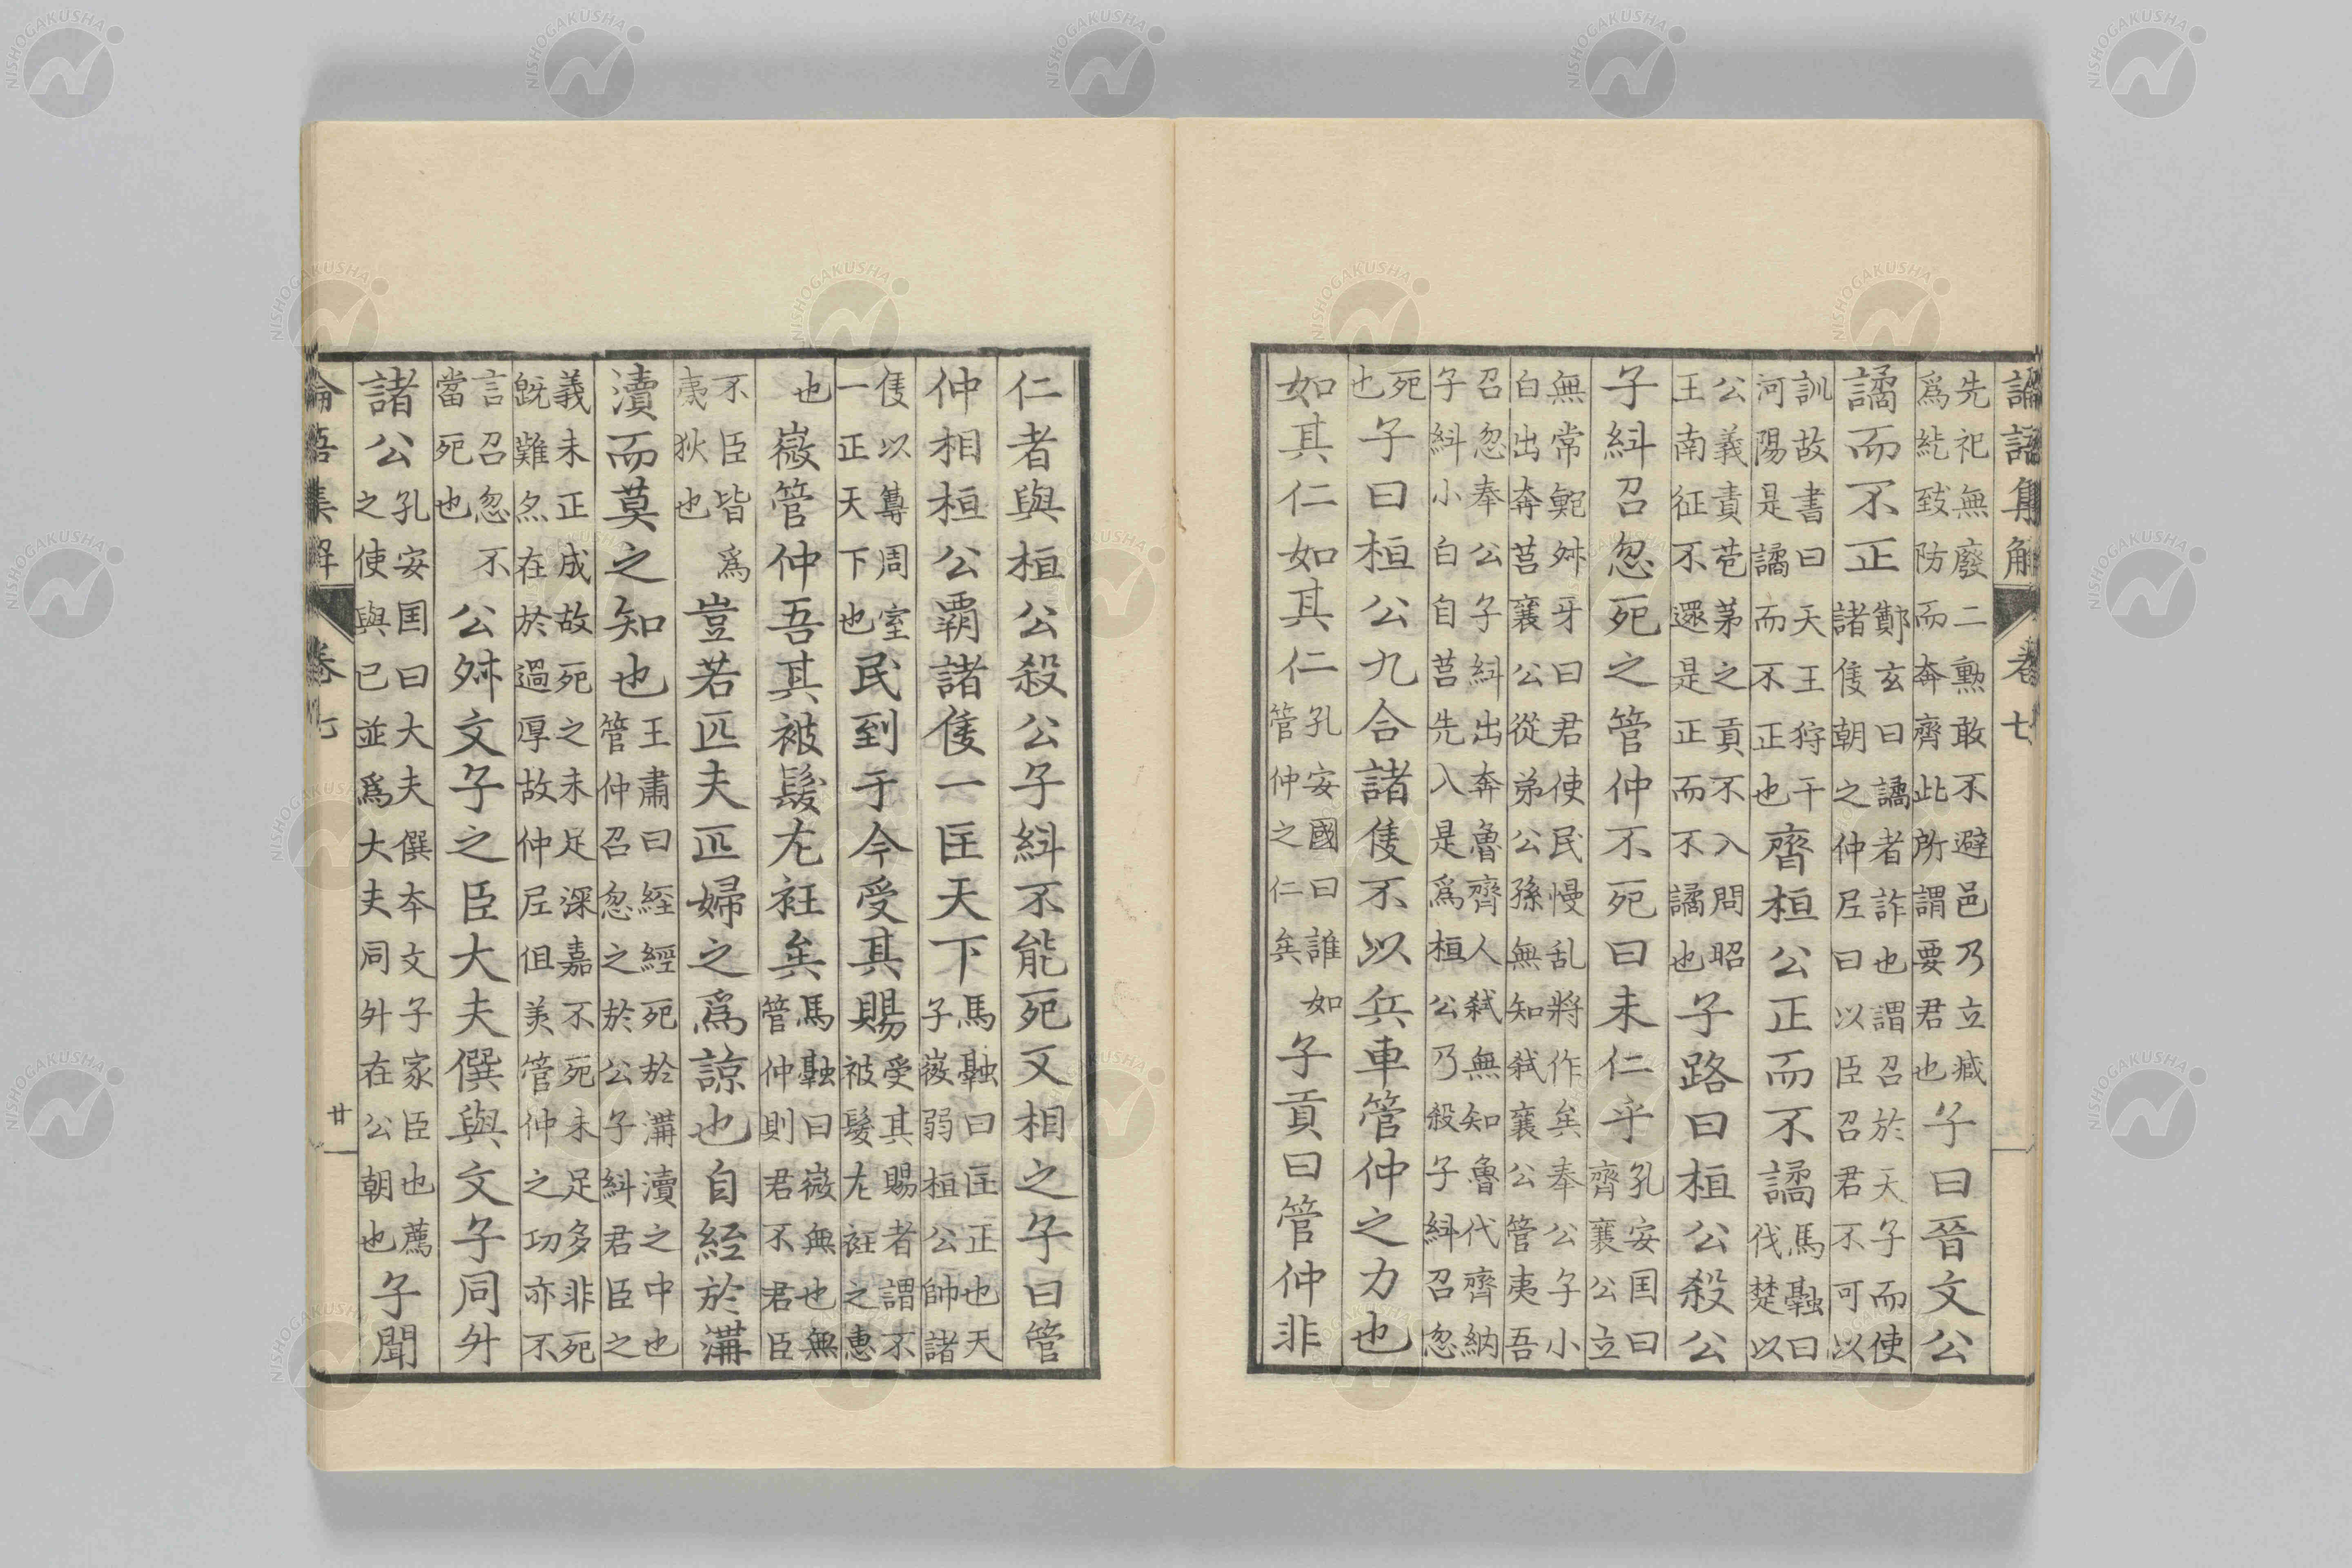 論語集解 卷七
先祀無廢二勲敢不避邑乃立臧
爲紇致防而奔齊此所謂要君也
子曰晉文公
譎而不正
鄭玄曰譎者詐也謂召於天子而使
諸侯朝之仲尼曰以臣召君不可以
訓故書曰天王狩于
河陽是譎而不正也
齊桓公正而不譎
馬融曰
伐楚以
公義責苞茅之貢不入問昭
王南征不還是正而不譎也
子路曰桓公殺公
子糾召忽死之管仲不死曰未仁乎
孔安国曰
齊襄公立
無常鮑叔牙曰君使民慢乱將作矣奉公子小
白出奔莒襄公從弟公孫無知弑襄公管夷吾
召忽奉公子糾出奔魯齊人弑無知魯代齊納
子糾小白自莒先入是爲桓公乃殺子糾召忽
死
也
子曰桓公九合諸侯不以兵車管仲之力也
如其仁如其仁
孔安國曰誰如
管仲之仁矣
子貢曰管仲非
仁者與桓公殺公子糾不能死又相之子曰管
仲相桓公覇諸侯一匡天下
馬融曰匡正也天
子微弱桓公帥諸
侯以尊周室
一正天下也
民到于今受其賜
受其賜者謂不
被髮左衽之惠
也
微管仲吾其被髮左衽矣
馬融曰微無也無
管仲則君不君臣
不臣皆爲
夷狄也
豈若匹夫匹婦之爲諒也自經於溝
瀆而莫之知也
王肅曰經經死於溝瀆之中也
管仲召忽之於公子糾君臣之
義未正成故死之未足深嘉不死未足多非死
既難亦在於過厚故仲尼但美管仲之功亦不
言召忽不
當死也
公叔文子之臣大夫僎與文子同升
諸公
孔安国曰大夫僎本文子家臣也薦
之使與已並爲大夫同升在公朝也
子聞
論語集解 卷七 廿